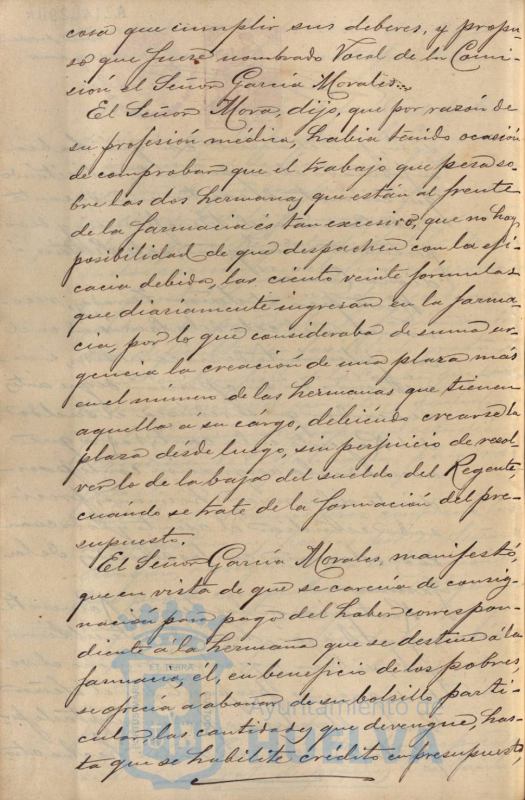 cosa que cumplir sus deberes, y propu-
so que fuere nombrado Vocal de la Comi-
sión el Señor García Morales.
El Señor Mora, dijo, que por razón de
su profesión médica, había tenido ocasión
de comprobar que el trabajo que pesa so-
bre las dos hermanas que están al frente
de la farmacia és tan excesivo, que no hay
posibilidad de que despachen con la efi-
cacia debida, las ciento veinte fórmulas
que diariamente ingresan en la farma-
cia, por lo que consideraba de suma ur-
gencia la creación de una plaza más
en el número de las hermanas que tienen
aquella á su cargo, debiéndo crearse la
plaza désde luego, sin perjuicio de resol-
ver lo de la baja del sueldo del Regente,
cuándo se trate de la formación del pre-
supuesto.
El Señor García Morales, manifestó,
que en vista de que se carecía de consig-
nación para pago del haber correspon-
diente á la hermana que se destine á la
farmacia, él, en beneficio de los pobres,
se ofrecía á abonar de su bolsillo parti-
cular las cantidades que devengue, has-
ta que se habilite crédito en presupuesto,
Ayuntamiento de
HUELVA